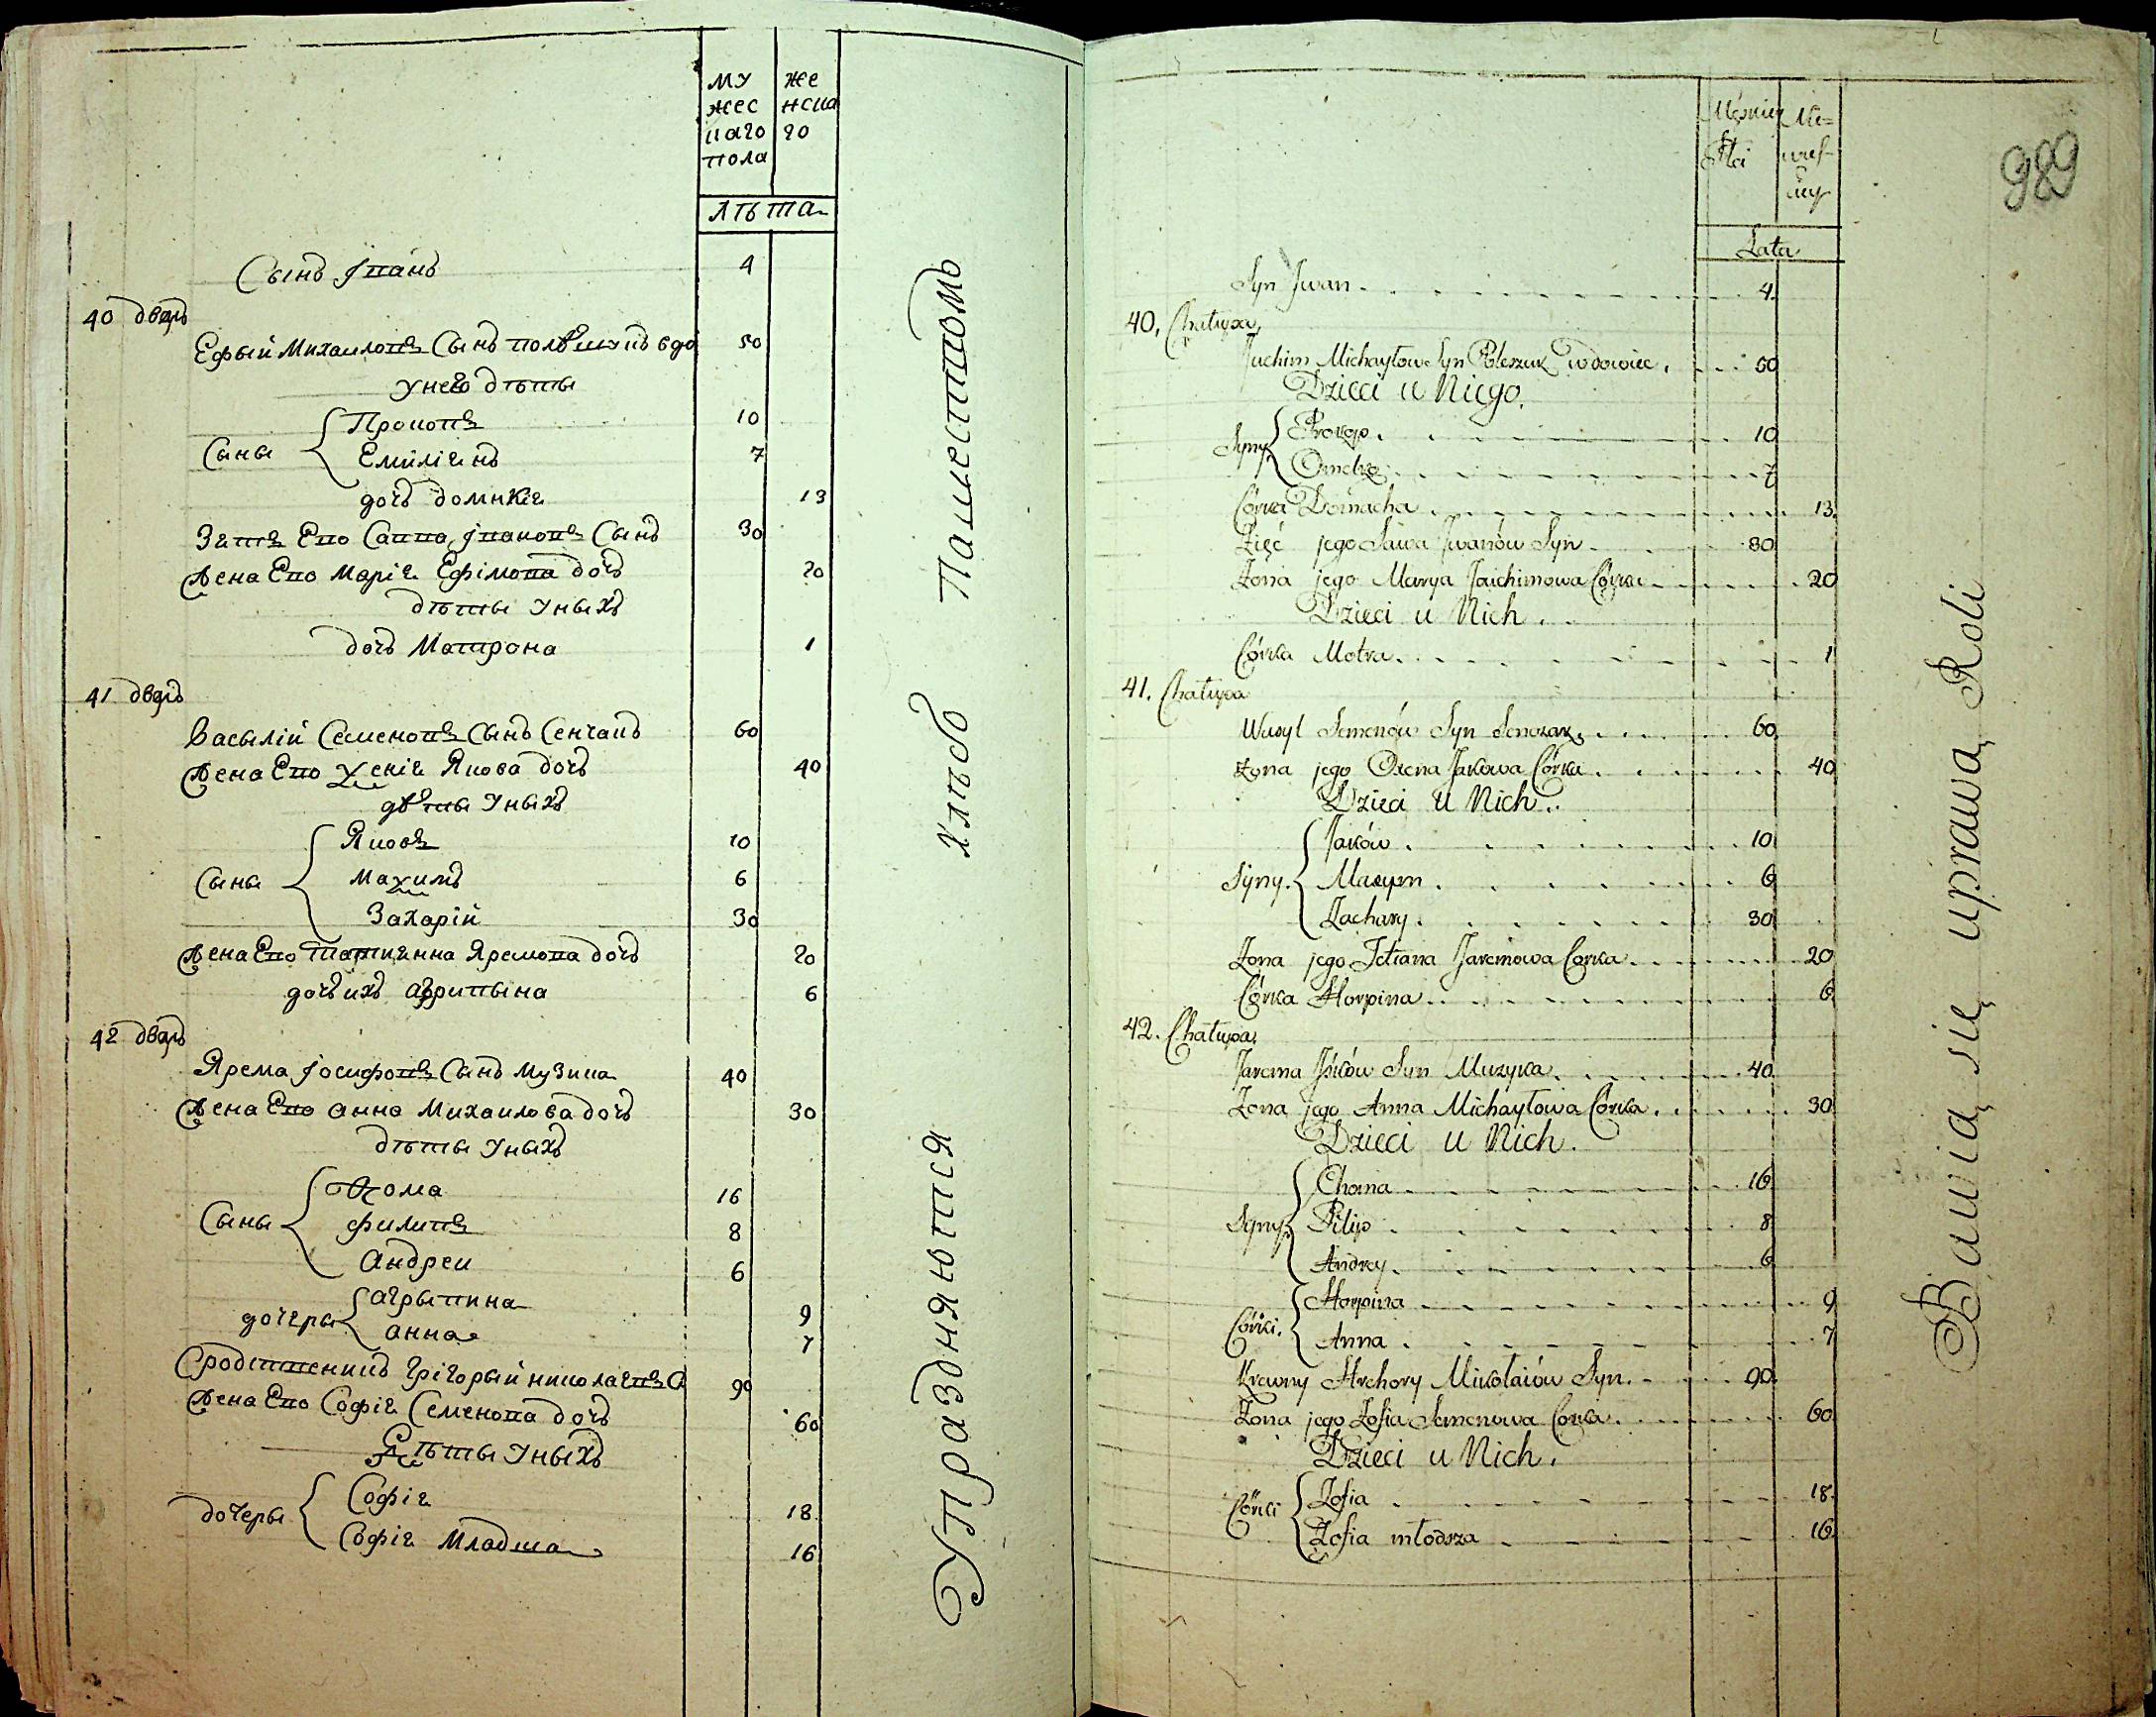 му же
жес нска
каго го
пола
лѣта
Сынъ Іванъ 4
40 дворъ
Ефый Михаиловъ Сынъ полѣшукъ вдо 50
унего дѣты
Сыны Прокопъ 10
Емиліянъ 7
дочъ домнікія 13
Зять Его Савва івановъ Сынъ 30
Жена Его Марія Ефімова дочъ 20
дѣты уныхъ
дочъ Матрона 1
41 дворъ
Васылій Семеновъ Сынъ Сенчакъ 60
Жена Его Ѯенія Якова дочъ 40
дѣты уныхъ
Яковъ 10
Сыны Маѯимъ 6
Захарій 30
Жена Его Татиянна Яремова дочъ 20
дочъ ихъ агрипына 6
42 дворъ
Ярема Іосифовъ Сынъ Музика 40
Жена Его анна Михаилова дочъ 30
дѣты уныхъ
Ѳома 16
Сыны филипъ 8
Андреи 6
дочеры агрыпина 9
анна 7
Сродственикъ Грігорый николаявъ С 90
Жена Его Софія Семенова дочъ 60
Дѣты уныхъ
дочеры Софія 18
Софія Младша 16
Упраздняются хлѣбо пашествомъ
989
Męskiej Nie=
Płci wieś=
ciey
Lata
Syn Jwan 4
40. Chałupa
Juchim Michayłow Syn Poleszuk wdowiec 50
Dzieci u Niego.
Syny Prokop 10
Omelko 7
Córka Domacha 13
Zięć jego Sawa Jwanów Syn 30
Żona jego Marya Jaichimowa Córka 20
Dzieci u Nich.
Córka Motra 1
41. Chałupa
Wasyl Semenów Syn Senczak 60
Żona jego Oxena Jakowa Córka 40
Dzieci u Nich.
Jaków 10
Syny. Maxym 6
Zachary 30
Żona jego Tetiana Jaremowa Corka 20
Córka Horpina 6
42. Chałupa
Jarema Jósków Syn Muzyka 40
Żona jego Anna Michayłowa Córka 30
Dzieci u Nich.
Choma 16
Syny Pilip 8
Andrey 6
Horpina 9
Córki. Anna 7
Krewny Hrehory Mikołaiów Syn 90
Żona jego Zofia Semenowa Corka 60
Dzieci u Nich.
Córki Zofia 18
Zofia młodsza 16
Bawią się uprawą Roli